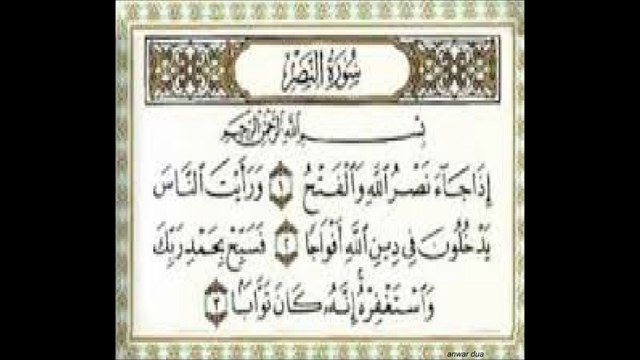 سُورَةُ النَّصْرِ
بِسْمِ اللَّهِ الرَّحْمَٰنِ الرَّحِيمِ
إِذَا جَاءَ نَصْرُ اللَّهِ وَالْفَتْحُ ١ وَرَأَيْتَ النَّاسَ
يَدْخُلُونَ فِي دِينِ اللَّهِ أَفْوَاجًا ٢ فَسَبِّحْ بِحَمْدِ رَبِّكَ
وَاسْتَغْفِرْهُ إِنَّهُ كَانَ تَوَّابًا ٣
anwar dua